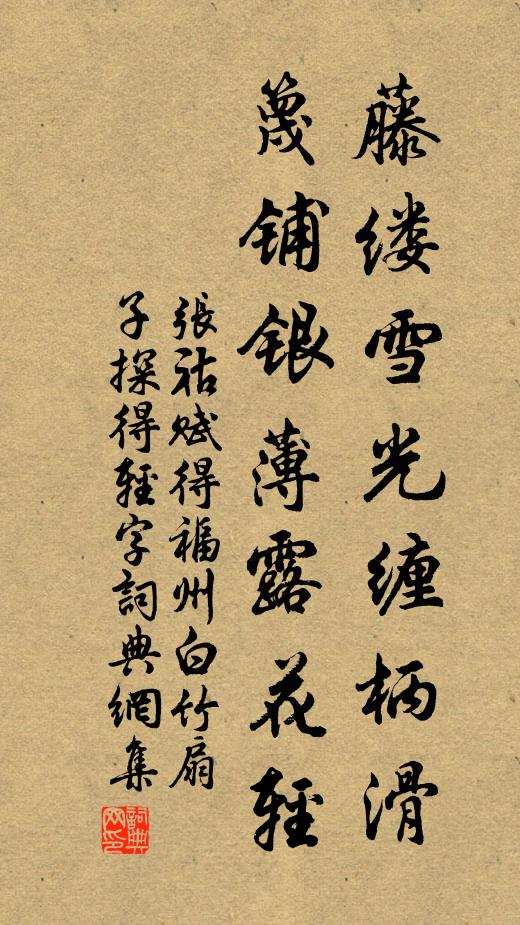 藤缕雪光缠柄滑
篾铺银薄露花輕
張祜赋得福州白竹扇
子探得輕字詞典網集
詞典
网印